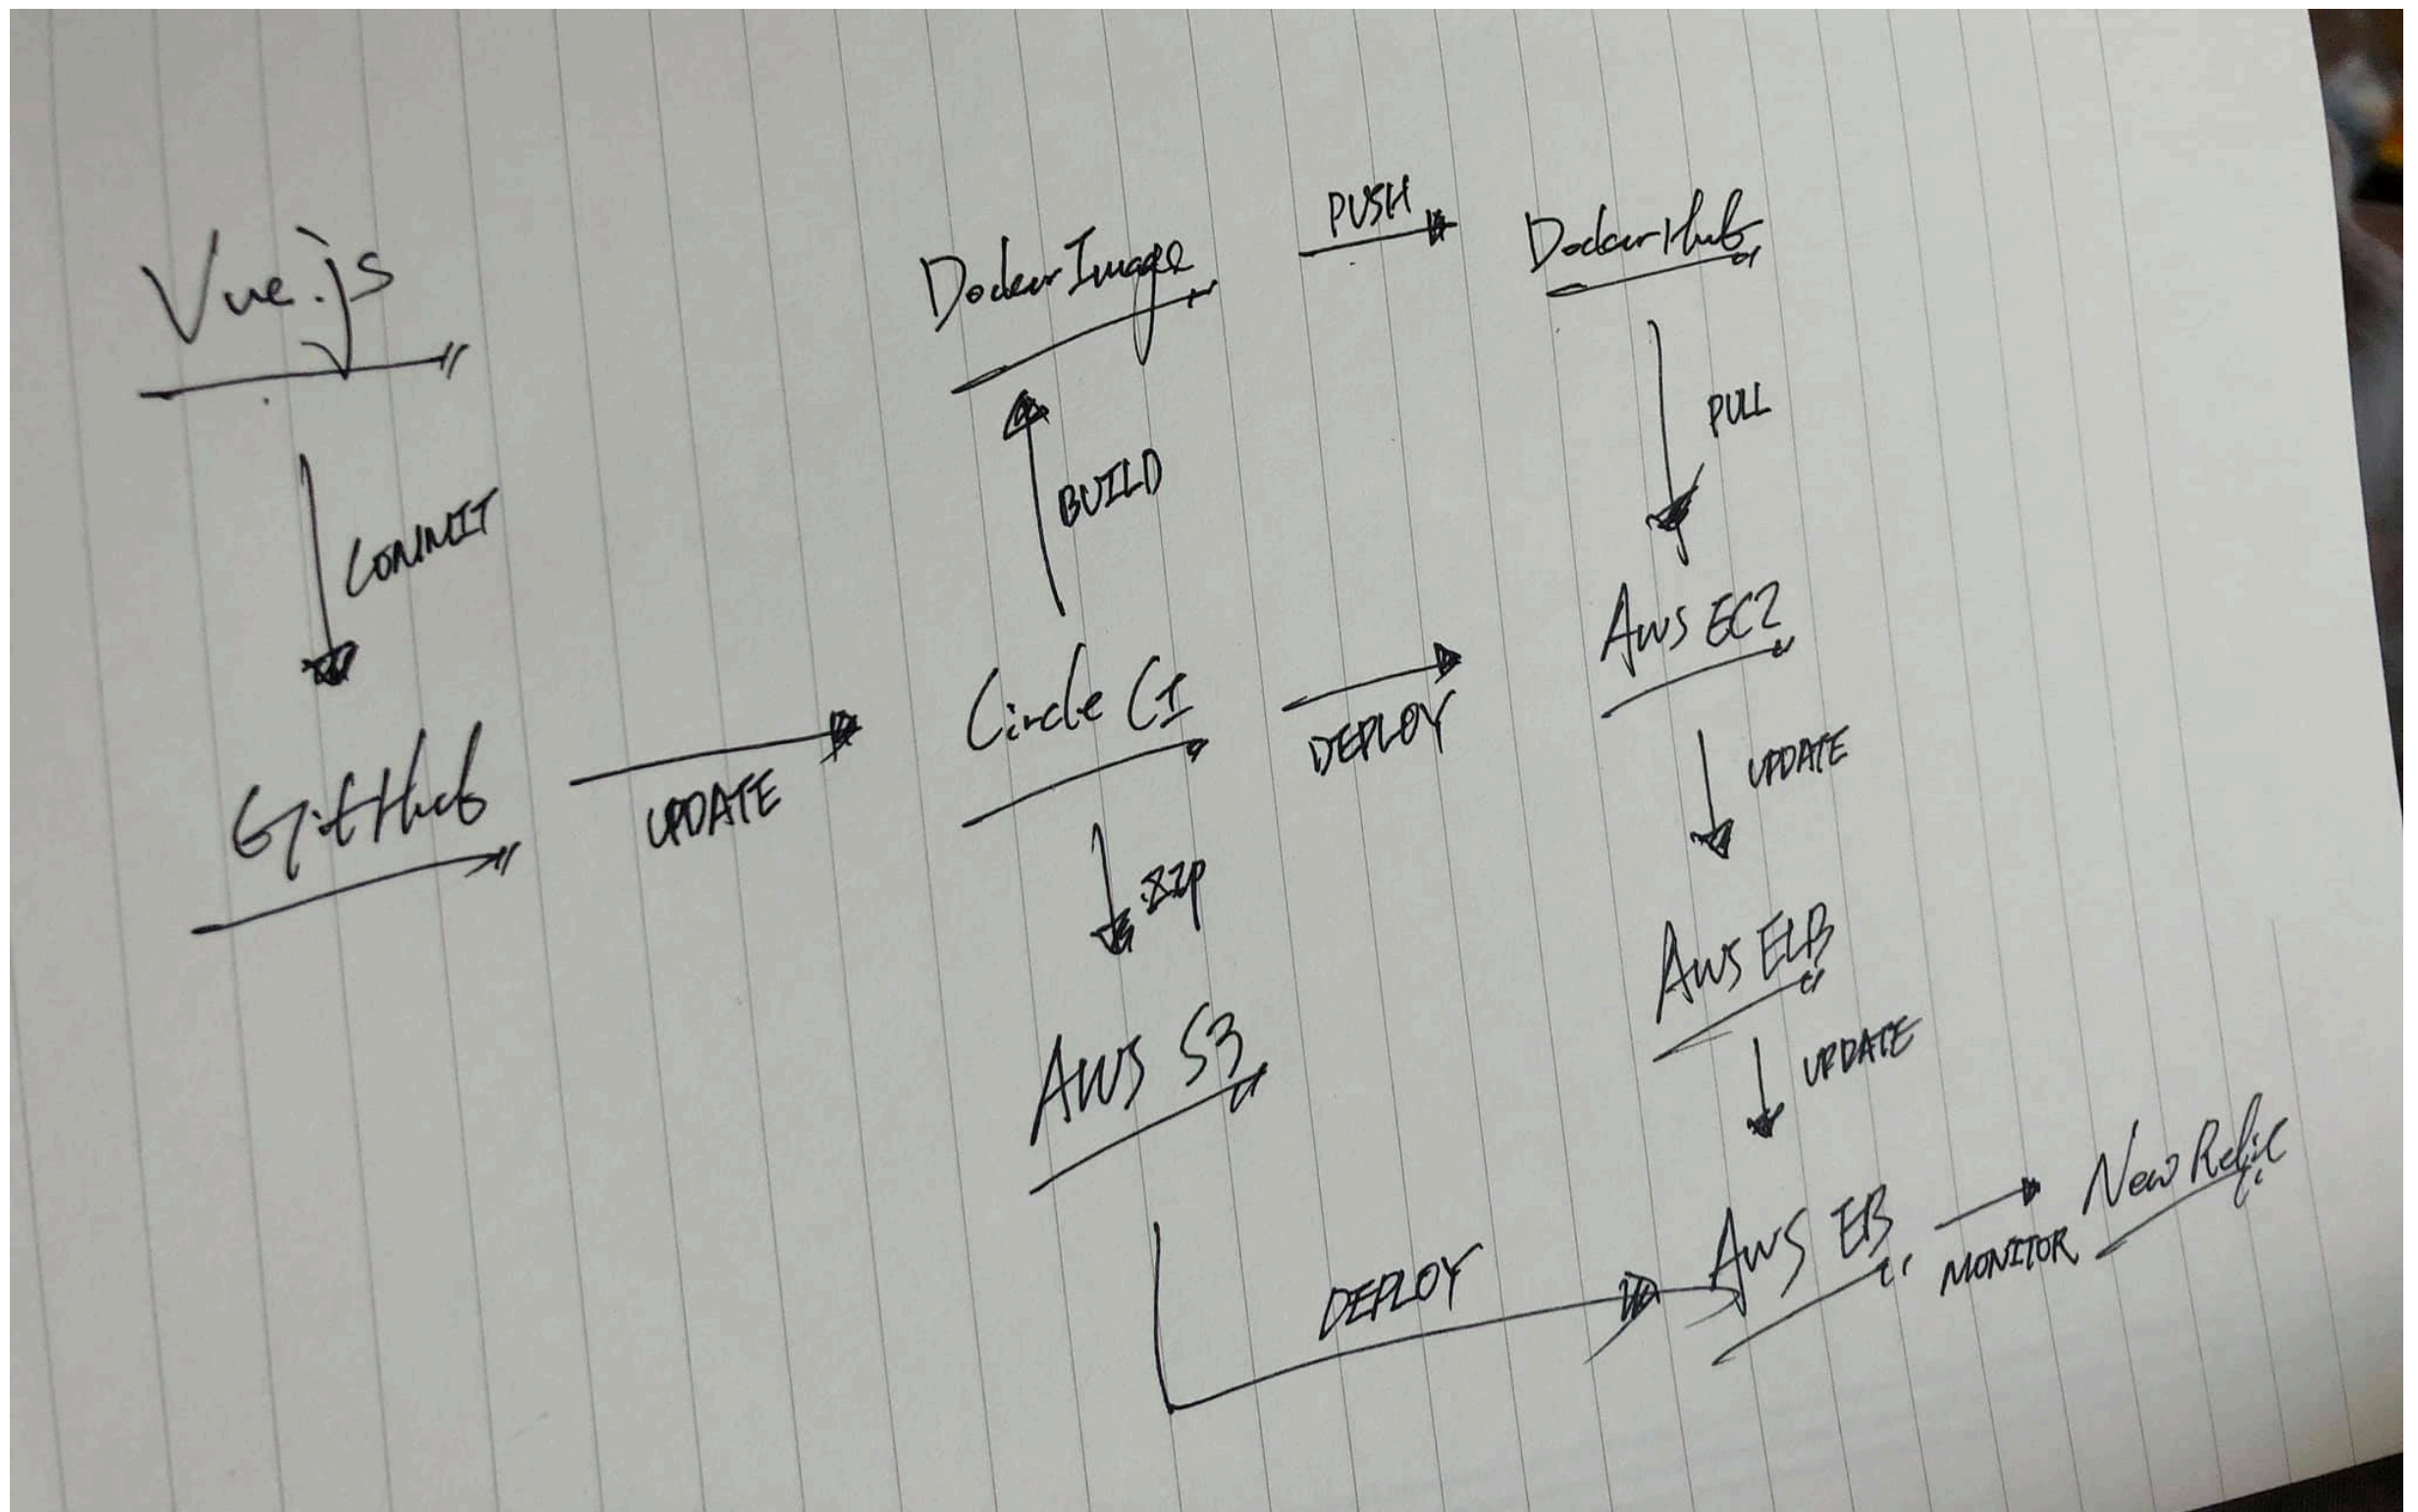 Vue.js
COMMIT
GitHub
UPDATE
Docker Image
BUILD
Circle CI
.zip
AWS S3
DEPLOY
PUSH
DockerHub
PULL
DEPLOY
AWS EC2
UPDATE
AWS ELB
UPDATE
AWS EB
MONITOR
New Relic